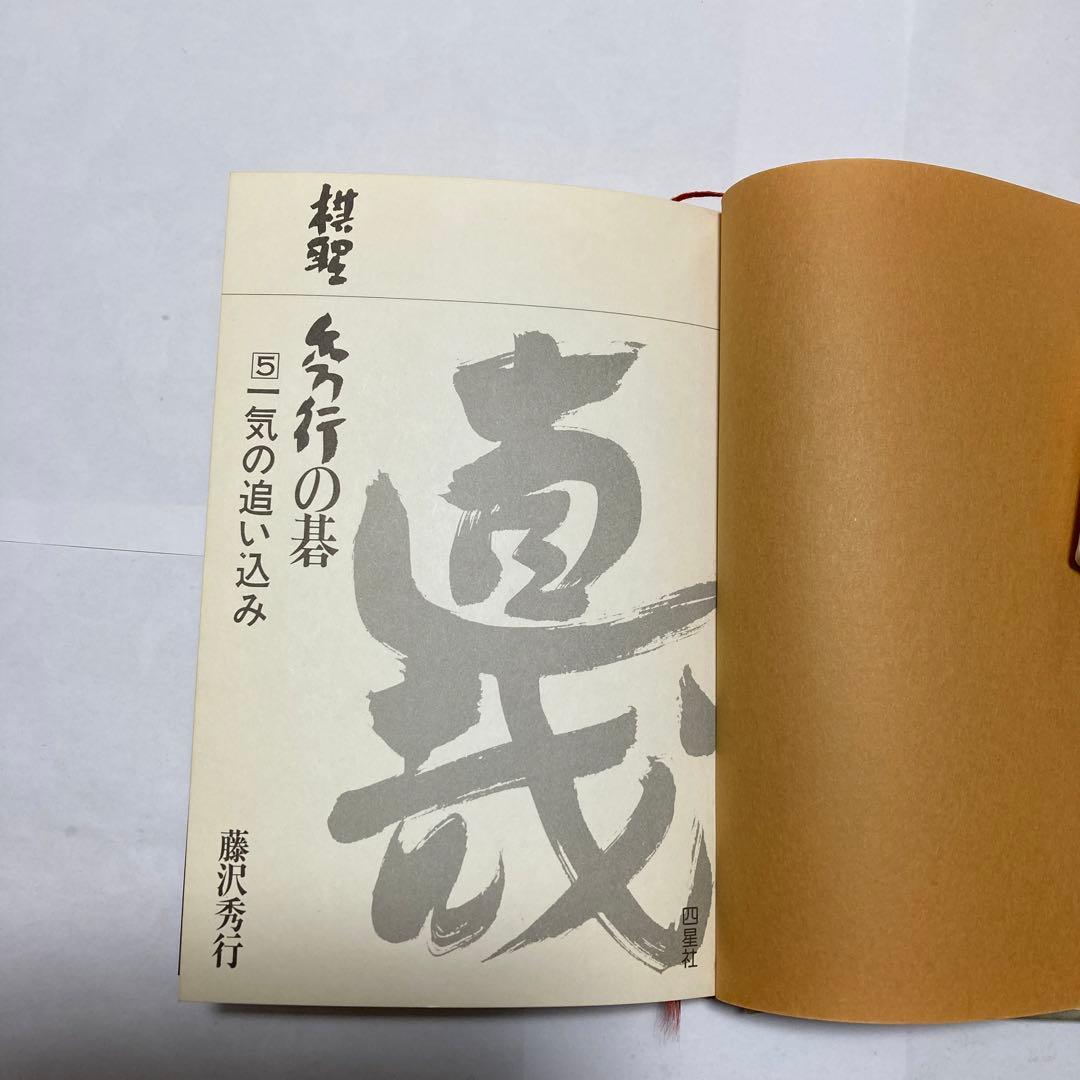 棋聖
秀行の碁
5一気の追い込み
藤沢秀行
四星社